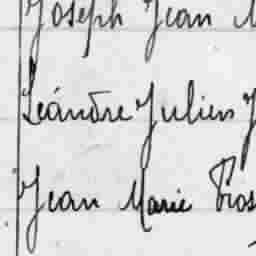 Joseph Jean
Léandre Julien
Jean Marie